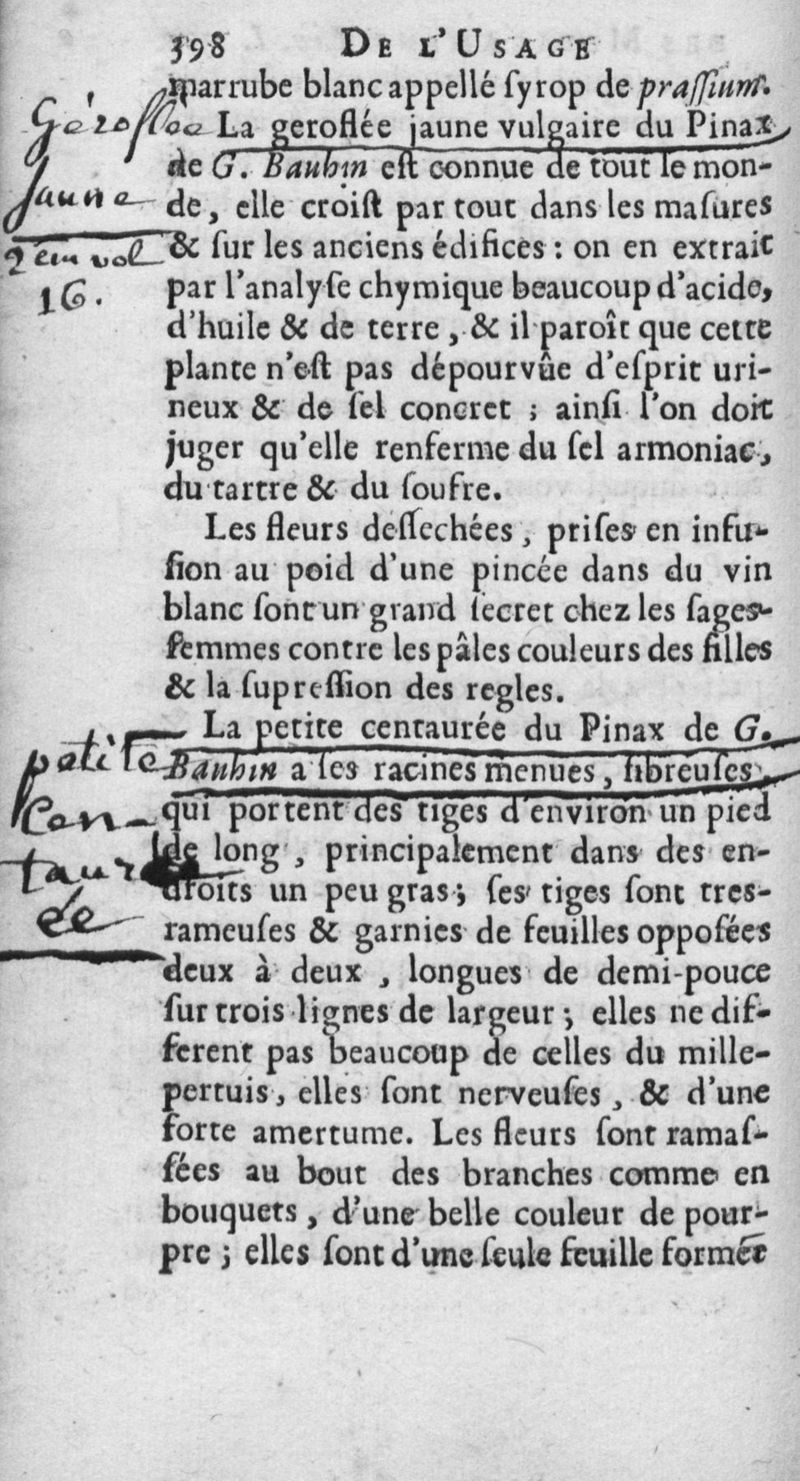 398 DE L'USAGE
marrube blanc appellé ſyrop de praſſium.
Géroflée
La geroflée jaune vulgaire du Pinax
de G. Bauhin eſt connue de tout le mon-
jaune
de, elle croiſt par tout dans les maſures
2em vol
& ſur les anciens édifices : on en extrait
16.
par l'analyſe chymique beaucoup d'acide,
d'huile & de terre, & il paroît que cette
plante n'eſt pas dépourvûe d'eſprit uri-
neux & de ſel concret ; ainſi l'on doit
juger qu'elle renferme du ſel armoniac,
du tartre & du ſoufre.
Les fleurs deſſechées, priſes en infu-
ſion au poid d'une pincée dans du vin
blanc ſont un grand ſecret chez les ſages-
femmes contre les pâles couleurs des filles
& la ſupreſſion des regles.
La petite centaurée du Pinax de G.
petite
Bauhin a ſes racines menues, fibreuſes,
Cen-
qui portent des tiges d'environ un pied
de long, principalement dans des en-
taur
droits un peu gras ; ſes tiges ſont tres-
ée
rameuſes & garnies de feuilles oppoſées
deux à deux, longues de demi-pouce
ſur trois lignes de largeur ; elles ne dif-
ferent pas beaucoup de celles du mille-
pertuis, elles ſont nerveuſes, & d'une
forte amertume. Les fleurs ſont ramaſ-
ſées au bout des branches comme en
bouquets, d'une belle couleur de pour-
pre ; elles ſont d'une ſeule feuille formée